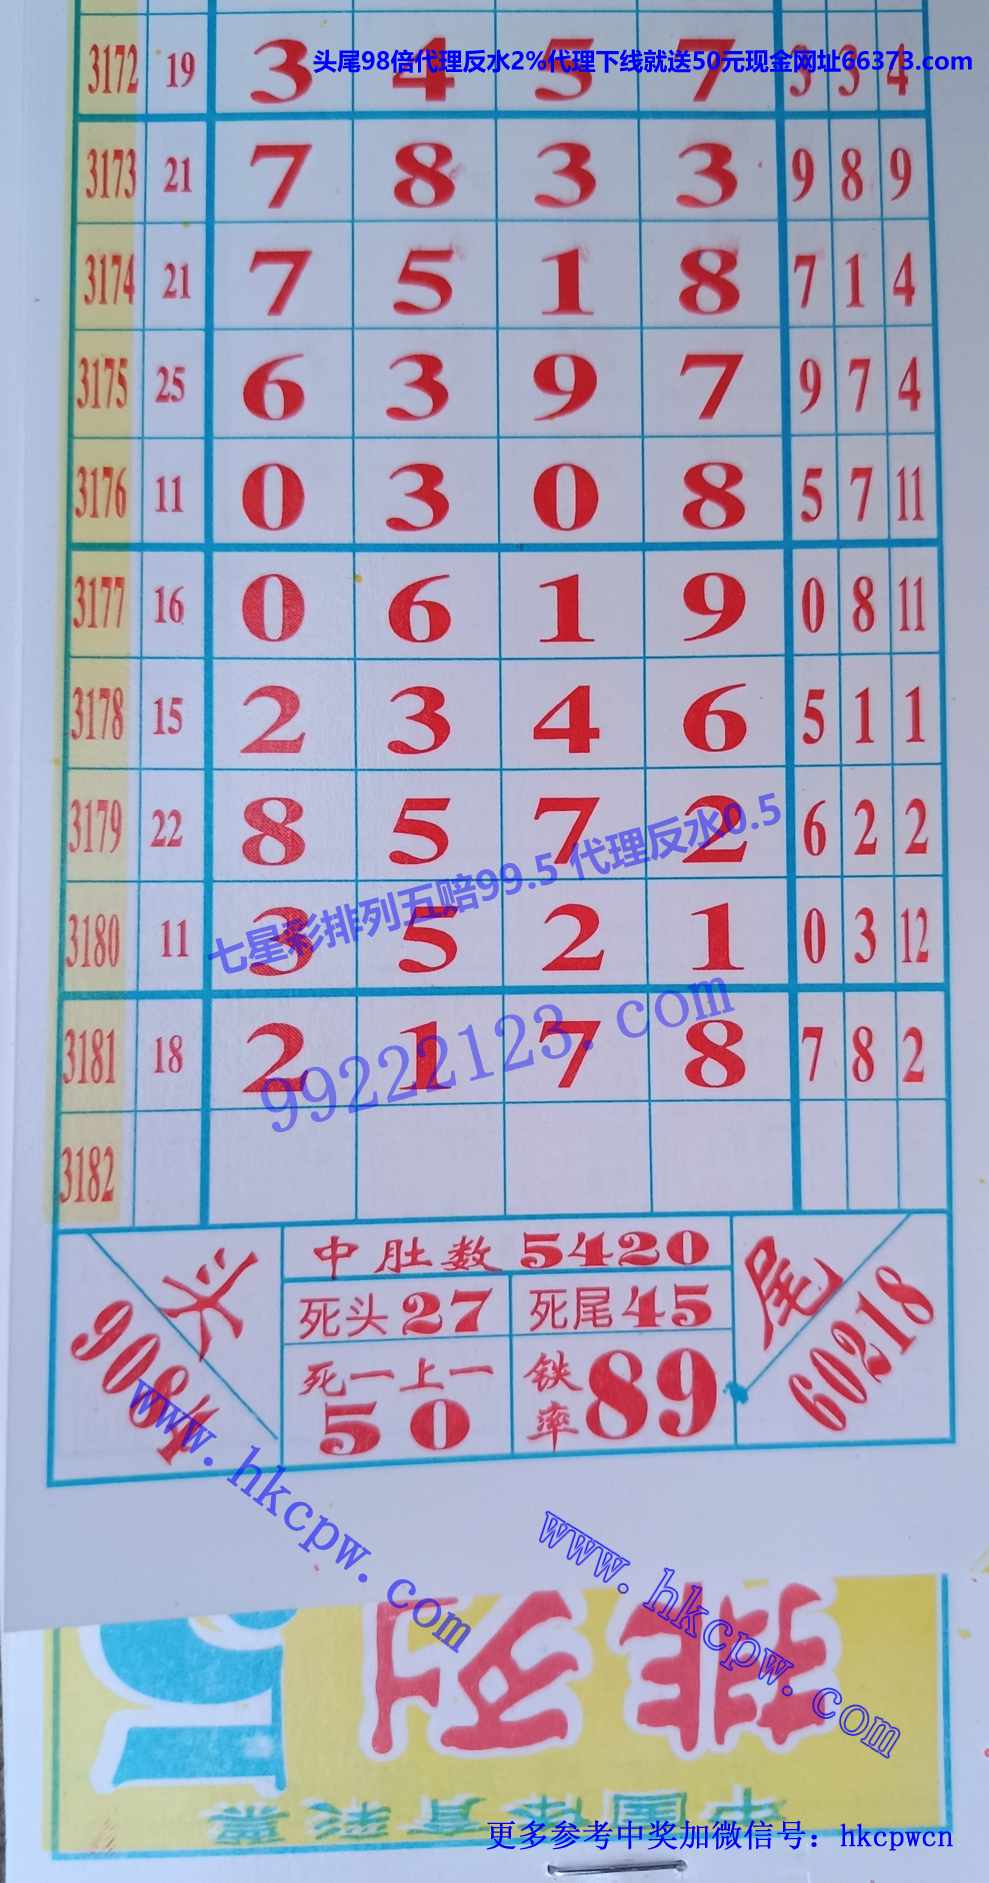 头尾98倍代理反水2%代理下线就送50元现金网址66373.com
3172 19 3 4 5 7 3 3 4
3173 21 7 8 3 3 9 8 9
3174 21 7 5 1 8 7 1 4
3175 25 6 3 9 7 9 7 4
3176 11 0 3 0 8 5 7 11
3177 16 0 6 1 9 0 8 11
3178 15 2 3 4 6 5 1 1
3179 22 8 5 7 2 6 2 2
七星彩排列五赔99.5 代理反水0.5
3180 11 3 5 2 1 0 3 12
99222123.com
3181 18 2 1 7 8 7 8 2
3182
头 中肚数 5420 尾
死头27 死尾45
90684 死一上一 50 铁率 89 60218
www.hkcpw.com
www.hkcpw.com
排列
中国体育彩票
更多参考中奖加微信号：hkcpwcn